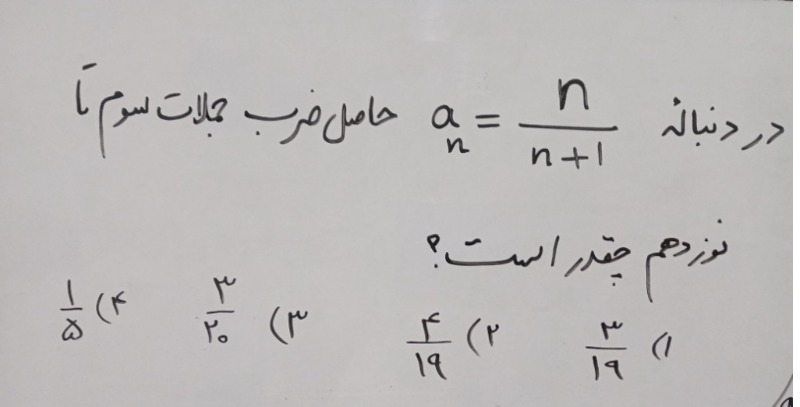 در دنبالهٔ a_n = n/(n+1) حاصل ضرب جملات سوم تا
نوزدهم چقدر است؟
۱) ۳/۱۹ ۲) ۴/۱۹ ۳) ۳/۲۰ ۴) ۱/۵